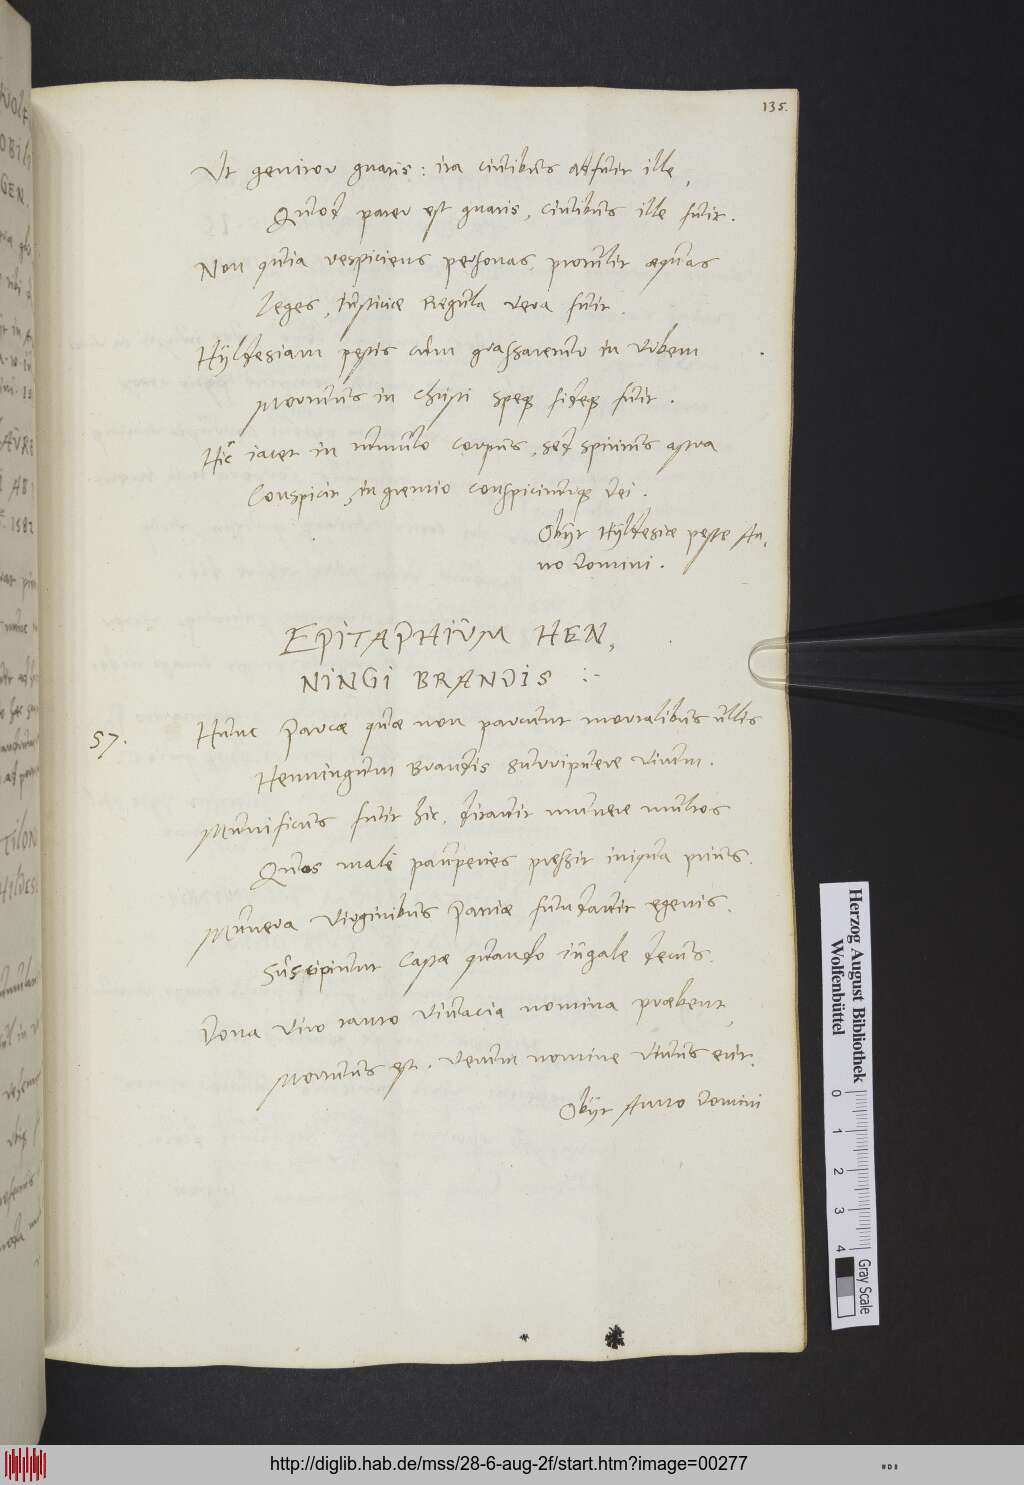 135.
Ut genitor gnatis: ita civibus adfuit ille,
Quod pater est gnatis, civibus ille fuit.
Non quia respiciens personas, protulit æquas
Leges, Iusticiæ Regula vera fuit.
Hÿldesiam pestis cùm grassarentur in Urbem
Mortuus in Christi speq; fideq; fuit.
Hîc iacet in tumulo corpus, sed spiritus astra
Conspicit, in gremio conspiciturq; Dei.
Obijt Hÿldesiæ peste An,
no Domini.
EPITAPHIUM HEN,
NINGI BRANDIS :-
57.
Hunc Parcæ quæ non parcunt mortalibus ullis
Henningum Brandis surripuere virum.
Munificus fuit hic, ditavit munere multos
Quos malè pauperies pressit iniqua prius.
Munera Virginibus Patriæ fundavit egenis.
Suscipiunt Castæ quando iugale decus.
Dona viro tanto vivacia nomina præbent,
Mortuus est, verum nomine vivus erit.
Obijt Anno Domini
Herzog August Bibliothek
Wolfenbüttel
0 1 2 3 4
Gray Scale
http://diglib.hab.de/mss/28-6-aug-2f/start.htm?image=00277